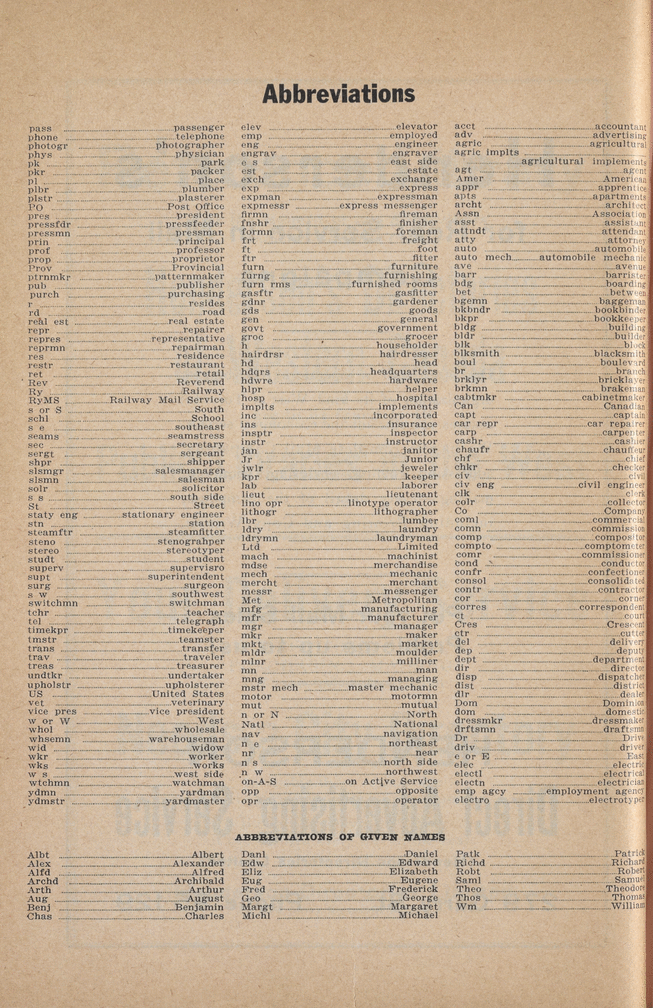 Abbreviations
pass passenger
phone telephone
photogr photographer
phys physician
pk park
pkr packer
pl place
plbr plumber
plstr plasterer
PO Post Office
pres president
pressfdr pressfeeder
pressmn pressman
prin principal
prof professor
prop proprietor
Prov Provincial
ptrnmkr patternmaker
pub publisher
purch purchasing
r resides
rd road
real est real estate
repr repairer
repres representative
reprmn repairman
res residence
restr restaurant
ret retail
Rev Reverend
Ry Railway
RyMS Railway Mail Service
s or S South
schl School
s e southeast
seams seamstress
sec secretary
sergt sergeant
shpr shipper
slsmgr salesmanager
slsmn salesman
solr solicitor
s s south side
St Street
staty eng stationary engineer
stn station
steamftr steamfitter
steno stenograhper
stereo stereotyper
studt student
superv supervisro
supt superintendent
surg surgeon
s w southwest
switchmn switchman
tchr teacher
tel telegraph
timekpr timekeeper
tmstr teamster
trans transfer
trav traveler
treas treasurer
undtkr undertaker
upholstr upholsterer
US United States
vet veterinary
vice pres vice president
w or W West
whol wholesale
whsemn warehouseman
wid widow
wkr worker
wks works
w s west side
wtchmn watchman
ydmn yardman
ydmstr yardmaster
elev elevator
emp employed
eng engineer
engrav engraver
e s east side
est estate
exch exchange
exp express
expman expressman
expmessr express messenger
firmn fireman
fnshr finisher
formn foreman
frt freight
ft foot
ftr fitter
furn furniture
furng furnishing
furn rms furnished rooms
gasftr gasfitter
gdnr gardener
gds goods
gen general
govt government
groc grocer
h householder
hairdrsr hairdresser
hd head
hdqrs headquarters
hdwre hardware
hlpr helper
hosp hospital
implts implements
inc incorporated
ins insurance
insptr inspector
instr instructor
jan janitor
Jr Junior
jwlr jeweler
kpr keeper
lab laborer
lieut lieutenant
lino opr linotype operator
lithogr lithographer
lbr lumber
ldry laundry
ldrymn laundryman
Ltd Limited
mach machinist
mdse merchandise
mech mechanic
mercht merchant
messr messenger
Met Metropolitan
mfg manufacturing
mfr manufacturer
mgr manager
mkr maker
mkt market
mldr moulder
mlnr milliner
mn man
mng managing
mstr mech master mechanic
motor motormn
mut mutual
n or N North
Natl National
nav navigation
n e northeast
nr near
n s north side
n w northwest
on-A-S on Active Service
opp opposite
opr operator
acct accountant
adv advertising
agric agricultural
agric implts
agricultural implements
agt agent
Amer American
appr apprentice
apts apartments
archt architect
Assn Association
asst assistant
attndt attendant
atty attorney
auto automobile
auto mech automobile mechanic
ave avenue
barr barrister
bdg boarding
bet between
bgemn baggeman
bkbndr bookbinder
bkpr bookkeeper
bldg building
bldr builder
blk block
blksmith blacksmith
boul boulevard
br branch
brklyr bricklayer
brkmn brakeman
cabtmkr cabinetmaker
Can Canadian
capt captain
car repr car repairer
carp carpenter
cashr cashier
chaufr chauffeur
chf chief
chkr checker
civ civil
civ eng civil engineer
clk clerk
colr collector
Co Company
coml commercial
comn commission
comp compositor
compto comptometer
comr commissioner
cond conductor
confr confectioner
consol consolidated
contr contractor
cor corner
corres correspondent
ct court
Cres Crescent
ctr cutter
del delivery
dep deputy
dept department
dir director
disp dispatcher
dist district
dlr dealer
Dom Dominion
dom domestic
dressmkr dressmaker
drftsmn draftsman
Dr Drive
driv driver
e or E East
elec electric
electl electrical
electn electrician
emp agcy employment agency
electro electrotyper
ABBREVIATIONS OF GIVEN NAMES
Albt Albert
Alex Alexander
Alfd Alfred
Archd Archibald
Arth Arthur
Aug August
Benj Benjamin
Chas Charles
Danl Daniel
Edw Edward
Eliz Elizabeth
Eug Eugene
Fred Frederick
Geo George
Margt Margaret
Michl Michael
Patk Patrick
Richd Richard
Robt Robert
Saml Samuel
Theo Theodore
Thos Thomas
Wm William